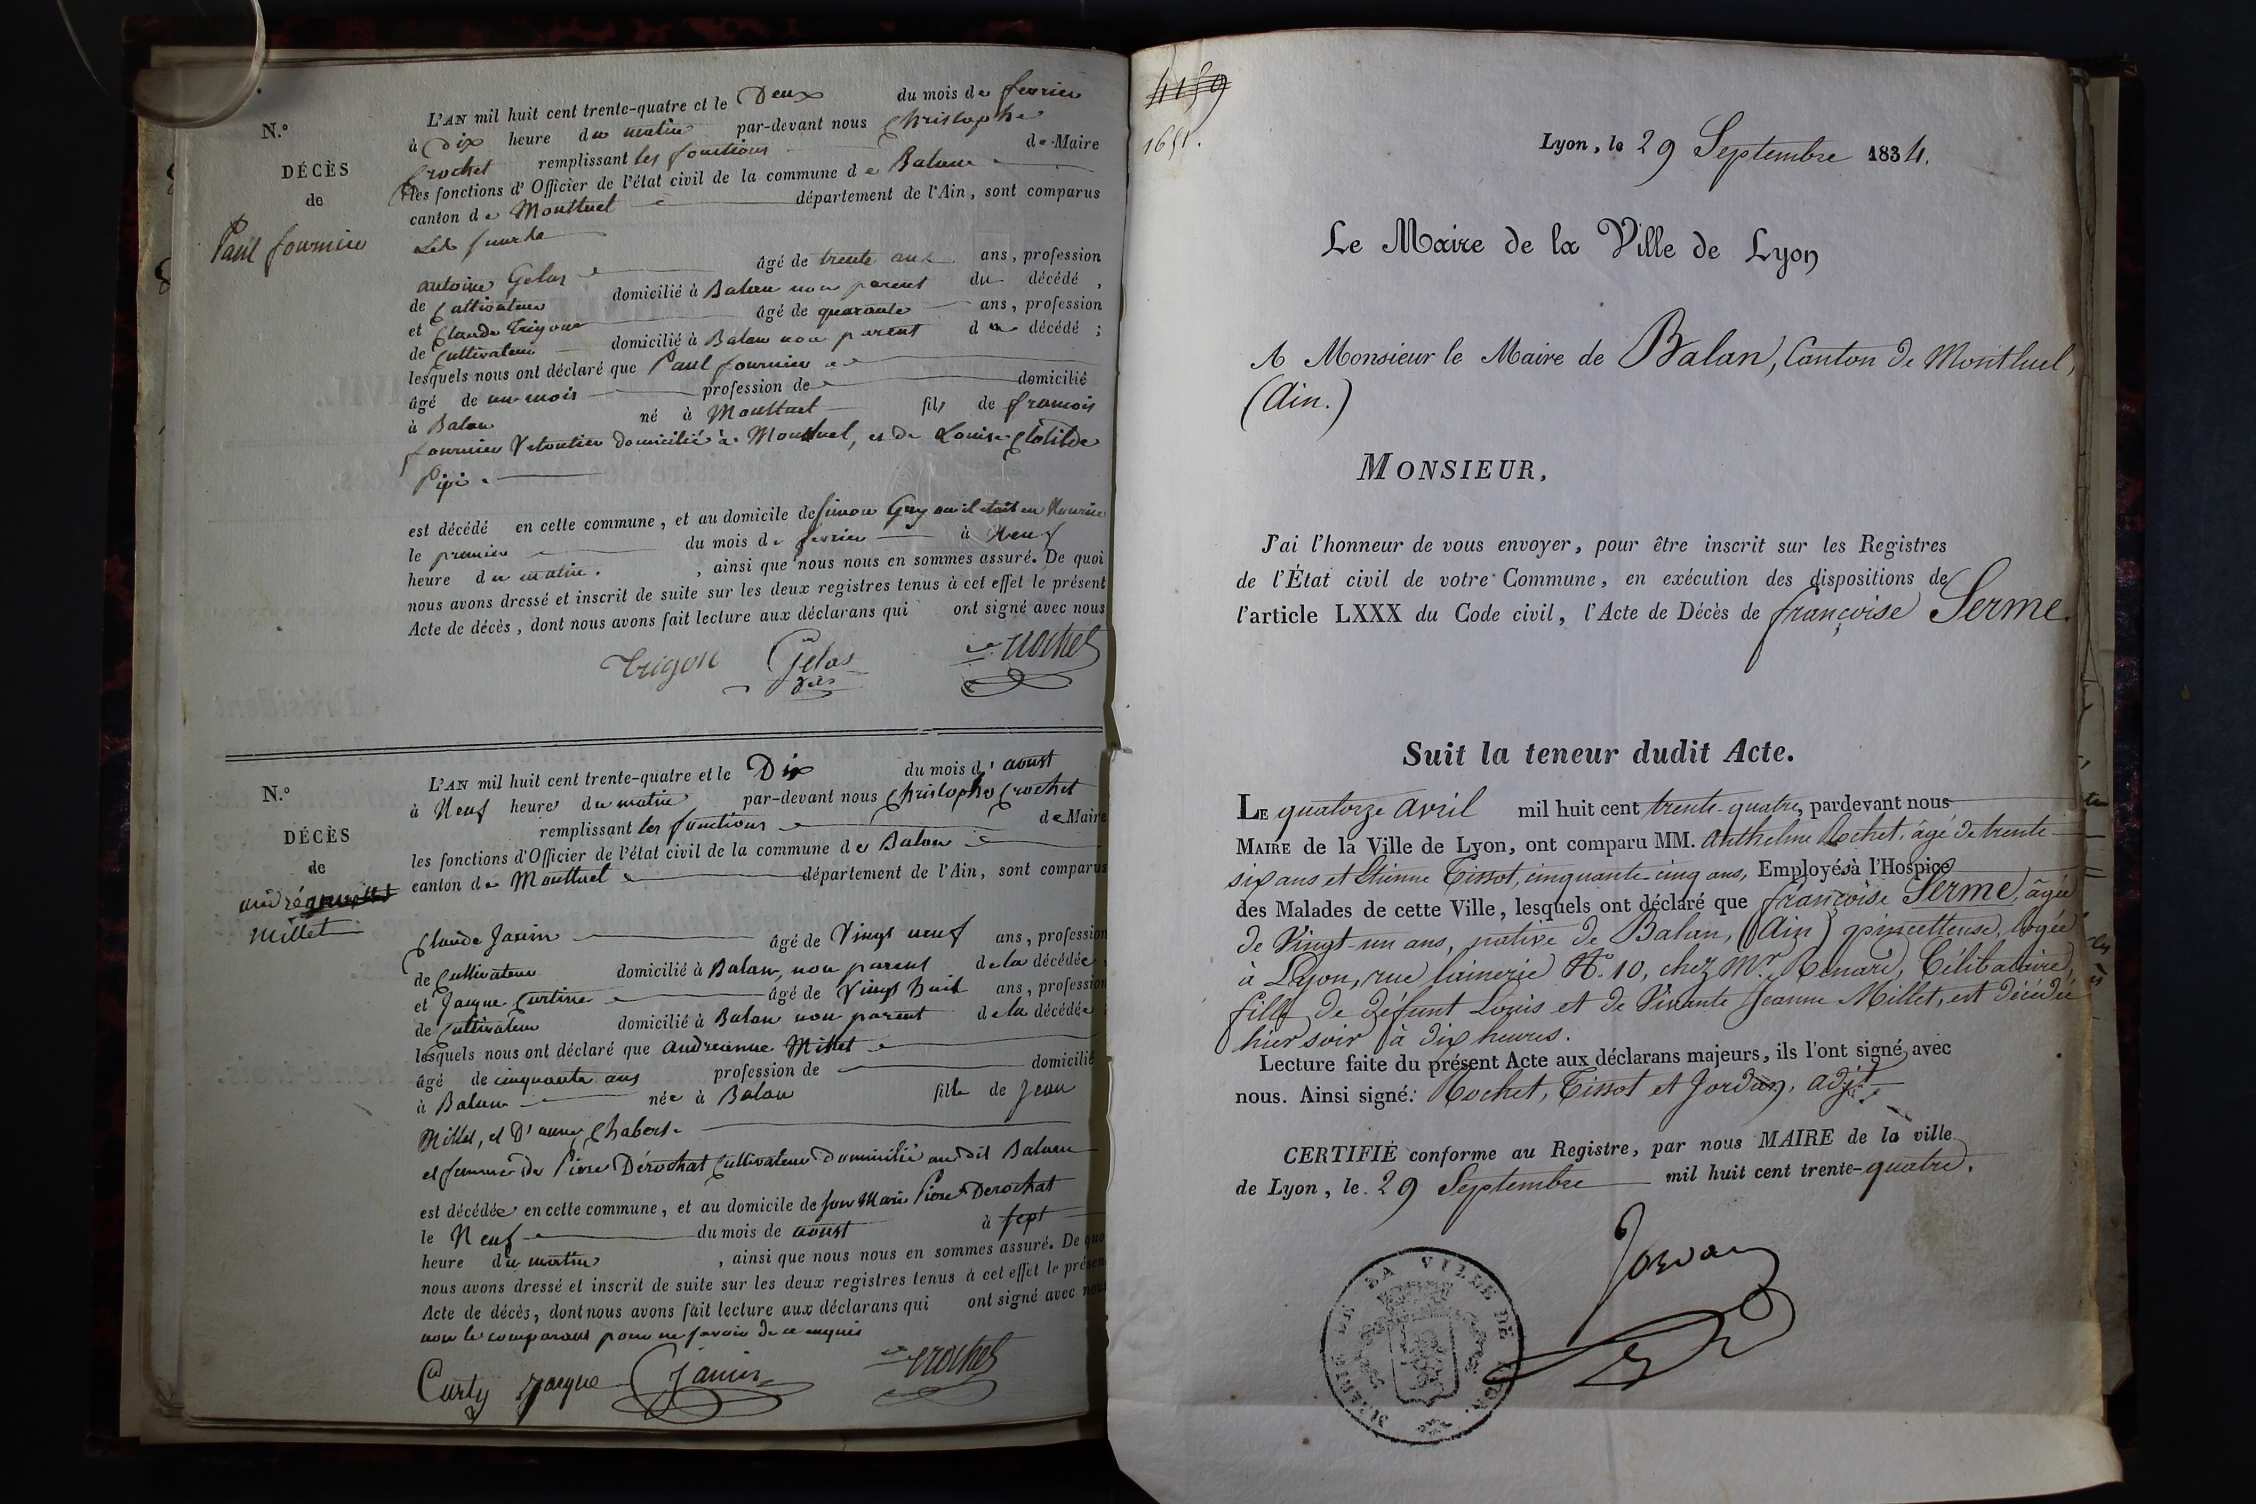 N.°
DÉCÈS
de
Paul fournier
L'AN mil huit cent trente-quatre et le Deux du mois de fevrier
à Dix heure du matin par-devant nous Christophe
Crochet remplissant les fonctions de Maire
les fonctions d'Officier de l'état civil de la commune de Balan
canton de Montluel département de l'Ain, sont comparus
antoine Gelas âgé de trente ans, profession
de Cultivateur domicilié à Balan non parent du décédé,
et Claude Trigon âgé de quarante ans, profession
de Cultivateur domicilié à Balan non parent du décédé;
lesquels nous ont déclaré que Paul fournier
âgé de un mois profession de domicilié
à Balan né à Montluel fils de francois
fournier domicilié à Montluel, et de Louise Clotilde
Pipi
est décédé en cette commune, et au domicile de simon Guy où il etait en Nourrice
le premier du mois de fevrier à Neuf
heure du matin, ainsi que nous nous en sommes assuré. De quoi
nous avons dressé et inscrit de suite sur les deux registres tenus à cet effet le présent
Acte de décès, dont nous avons fait lecture aux déclarans qui ont signé avec nous
Trigon Gelas Crochet
N.°
DÉCÈS
de
andré
Millet
L'AN mil huit cent trente-quatre et le Dix du mois d'aoust
à Neuf heures du matin par-devant nous Christophe Crochet
remplissant les fonctions de Maire
les fonctions d'Officier de l'état civil de la commune de Balan
canton de Montluel département de l'Ain, sont comparus
Claude Janin âgé de Vingt neuf ans, profession
de Cultivateur domicilié à Balan, non parent de la décédée
et Jacque Curtine âgé de Vingt huit ans, profession
de Cultivateur domicilié à Balan non parent de la décédée;
lesquels nous ont déclaré que andreanne Millet
âgé de cinquante ans profession de domicilié
à Balan née à Balan fille de Jean
Millet, et D'anne Chabert
et femme de Piere Dérochat Cultivateur Domicilié au dit Balan
est décédée en cette commune, et au domicile de son Mari Piere Derochat
le Neuf du mois de aoust à sept
heure du matin, ainsi que nous nous en sommes assuré. De quoi
nous avons dressé et inscrit de suite sur les deux registres tenus à cet effet le présent
Acte de décès, dont nous avons fait lecture aux déclarans qui ont signé avec nous
non le comparant pour ne savoir de ce enquis
Curty Jacque Janin Crochet
4159
1651.
Lyon, le 29 Septembre 1834.
Le Maire de la Ville de Lyon
A Monsieur le Maire de Balan, Canton de Montluel,
(Ain.)
MONSIEUR,
J'ai l'honneur de vous envoyer, pour être inscrit sur les Registres
de l'État civil de votre Commune, en exécution des dispositions de
l'article LXXX du Code civil, l'Acte de Décès de françoise Serme.
Suit la teneur dudit Acte.
LE quatorze avril mil huit cent trente-quatre, pardevant nous
MAIRE de la Ville de Lyon, ont comparu MM. Anthelme Rochet, âgé de trente
six ans et Etienne Tissot, cinquante-cinq ans, Employés à l'Hospice
des Malades de cette Ville, lesquels ont déclaré que françoise Serme, âgée
de Vingt-un ans, native de Balan, (Ain) pincetteuse, logée
à Lyon, rue lainerie N.° 10, chez Mr. Renard, Célibataire,
fille de défunt Louis et de Vivante Jeanne Millet, est décédée
hier soir à dix heures.
Lecture faite du présent Acte aux déclarans majeurs, ils l'ont signé avec
nous. Ainsi signé: Rochet, Tissot et Jordan, adjt.
CERTIFIÉ conforme au Registre, par nous MAIRE de la ville
de Lyon, le 29 Septembre mil huit cent trente-quatre.
Jordan
MAIRIE DE LA VILLE DE LYON